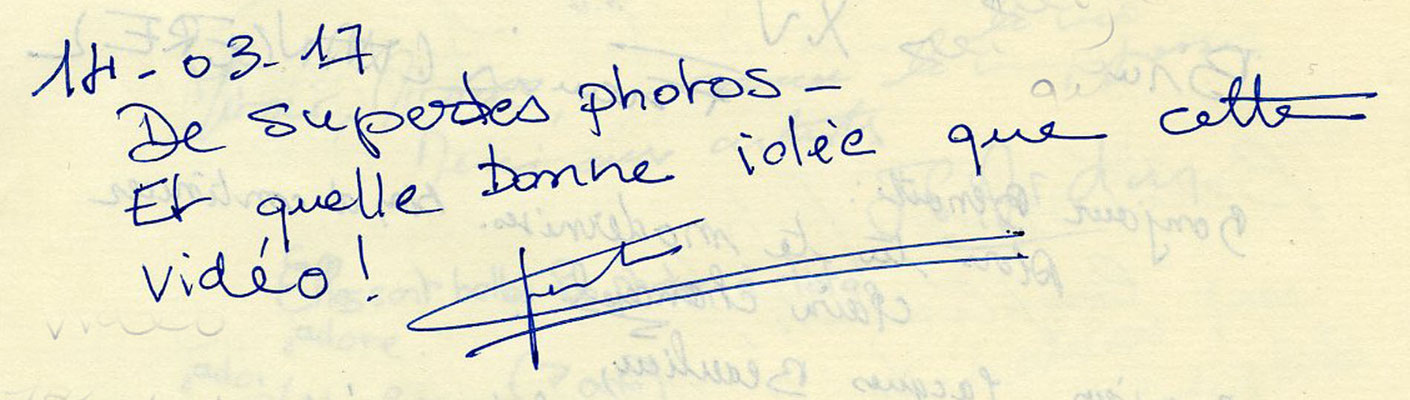 14-03-17
De superbes photos -
Et quelle bonne idée que cette
vidéo !